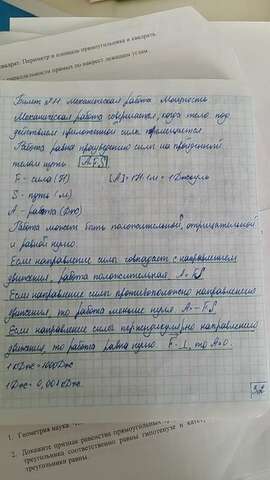 квадрат. Периметр и площадь прямоугольника и квадрата.
параллельности прямых по накрест лежащим углам
Билет №11 Механическая работа Мощность
Механическая работа совершается, когда тело под
действием приложенной силы перемещается
Работа равна произведению силы на пройденный
телом путь A=FS
F - сила (Н) [A]=1Н·1м = 1Джоуль
S - путь (м)
A - работа (Дж)
Работа может быть положительной, отрицательной
и равной нулю
Если направление силы совпадает с направлением
движения, работа положительная A=FS
Если направление силы противоположно направлению
движения, то работа меньше нуля A=-FS
Если направление силы перпендикулярно направлению
движения, то работа равна нулю. F-⊥, то A=0.
1КДж=1000Дж
1Дж=0,001КДж.
1. Геометрия наука
2. Докажите признак равенства прямоугольных
треугольника соответственно равны гипотенузе и катет
треугольники равны.